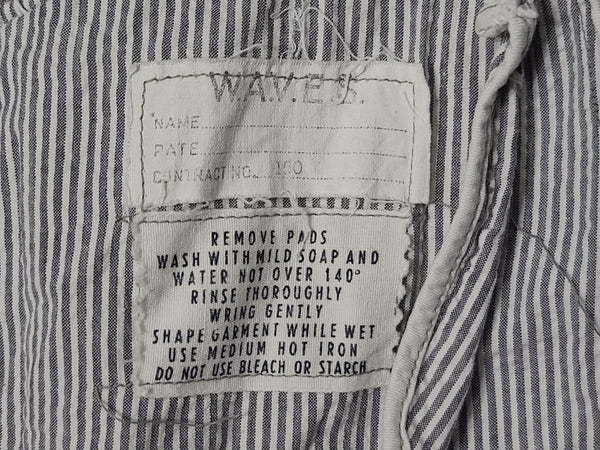 W.A.V.E.S.
NAME
RATE
CONTRACT NO. 150
REMOVE PADS
WASH WITH MILD SOAP AND
WATER NOT OVER 140°
RINSE THOROUGHLY
WRING GENTLY
SHAPE GARMENT WHILE WET
USE MEDIUM HOT IRON
DO NOT USE BLEACH OR STARCH